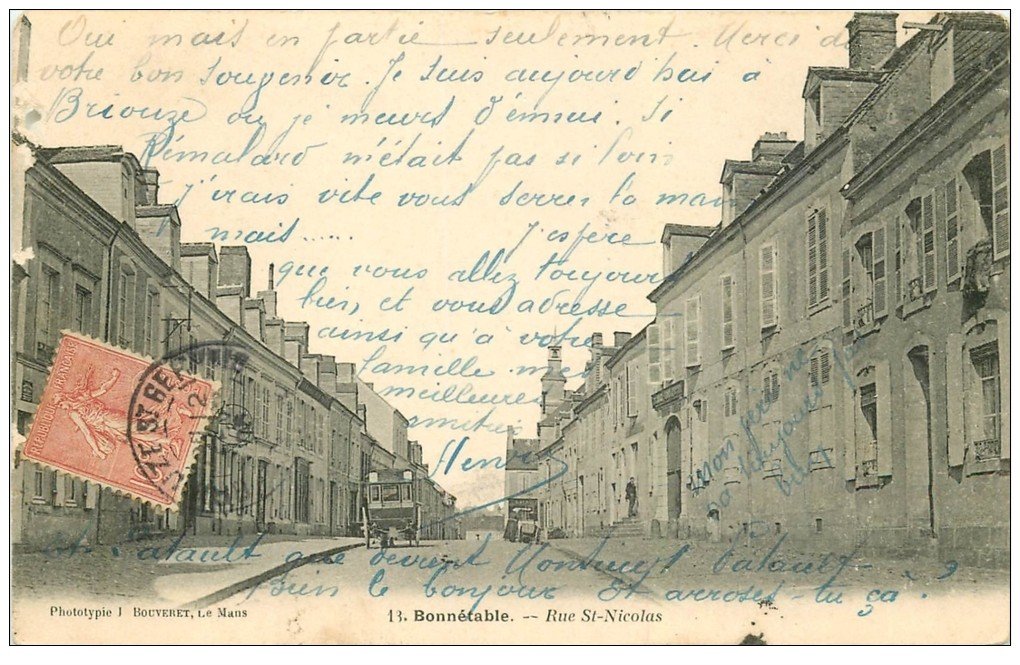 Oui mais en partie seulement. Merci de
votre bon souvenir. Je suis aujourd'hui à
Briouze ou je meurs d'ennui. Si
Rémalard n'était pas si loin
j'irais vite vous serrer la main
mais.....
J'espère
que vous allez toujours
bien, et vous adresse
ainsi qu'à votre
famille mes
meilleures
amitiés
Henri
Mon père ne
va toujours pas
Et Patault que devient Patault
bien le bonjour Et arroses-tu ça ?
REPUBLIQUE FRANÇAISE
10
Phototypie J BOUVERET, LE MANS
13. Bonnétable. -- Rue St-Nicolas